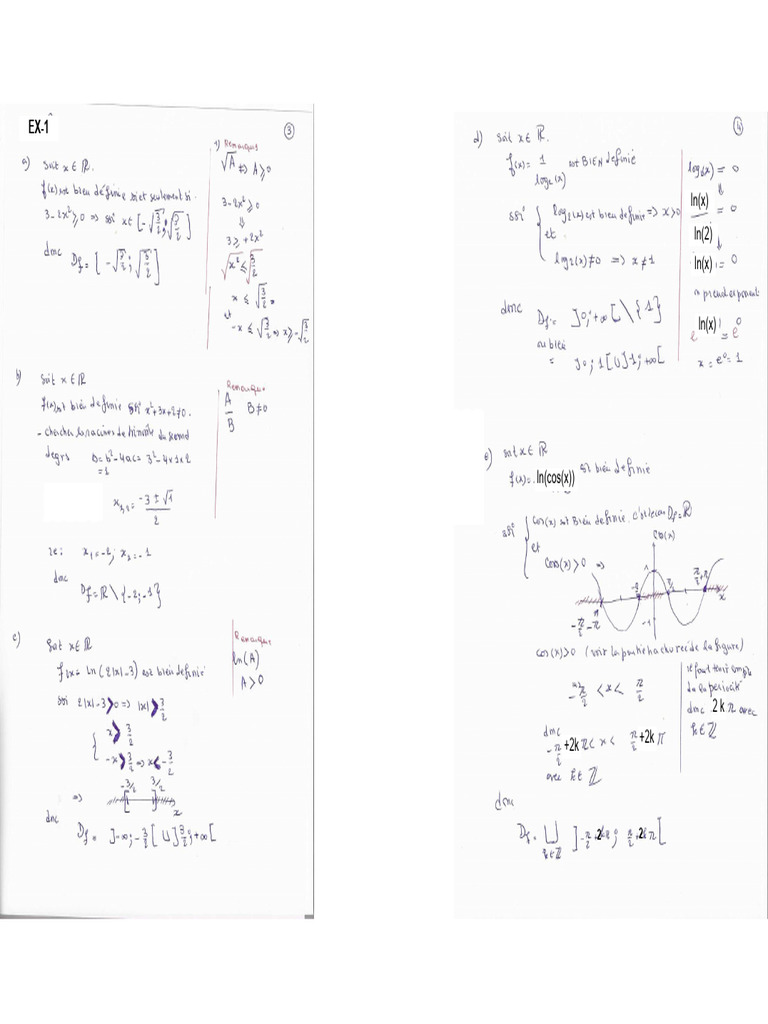 EX-1
③
a) Soit x ∈ ℝ.
f(x) est bien définie si et seulement si
3-2x² ≥ 0 => ssi x ∈ [-√(3/2) ; √(3/2)]
donc
Df = [-√(3/2) ; √(3/2)]
1) Remarques
√A <=> A ≥ 0
3-2x² ≥ 0
⇓
3 ≥ +2x²
√x² ≤ √(3/2)
x ≤ √(3/2)
et
-x ≤ √(3/2) => x ≥ -√(3/2)
b) Soit x ∈ ℝ
f(x) est bien définie ssi x²+3x+2 ≠ 0.
- chercher les racines de trinôme du second
degrs Δ = b²-4ac = 3²-4×1×2
= 1
x₂,₁ = (-3 ± √1)/2
ie: x₁ = -2 ; x₂ = -1
donc
Df = ℝ \ {-2 ; -1}
Remarque
A/B B ≠ 0
c) Soit x ∈ ℝ
f(x) = ln(2|x|-3) est bien définie
ssi 2|x|-3 > 0 => |x| > 3/2
{ x > 3/2
-x > 3/2 => x < -3/2
=> -3/2 3/2 x
donc
Df = ]-∞ ; -3/2[ U ]3/2 ; +∞[
Remarque
ln(A)
A > 0
④
d) Soit x ∈ ℝ.
f(x) = 1/log₂(x) est BIEN définie
ssi { log₂(x) est bien definie => x > 0
et
log₂(x) ≠ 0 => x ≠ 1
donc
Df = ]0 ; +∞[ \ {1}
ou bien
= ]0 ; 1[ U ]1 ; +∞[
log₂(x) = 0
⇓
ln(x)/ln(2) = 0
↓
ln(x) = 0
on prend exponent.
e^ln(x) = e⁰
x = e⁰ = 1
e) Soit x ∈ ℝ
f(x) = ln(cos(x)) est bien definie
ssi { cos(x) est Bien definie. c'est le cas Df = ℝ
et
cos(x) > 0 =>
cos(x)
1
-π/2 π/2 π/2+π x
-π/2-π
-1
cos(x) > 0 (voir la partie hachurée de la figure)
-π/2 < x < π/2
donc
-π/2+2kπ < x < π/2+2kπ
avec k ∈ ℤ
il faut tenir compte
de la périodicité
donc 2kπ avec
k ∈ ℤ
donc
Df = ⋃ k∈ℤ ]-π/2+2kπ ; π/2+2kπ[